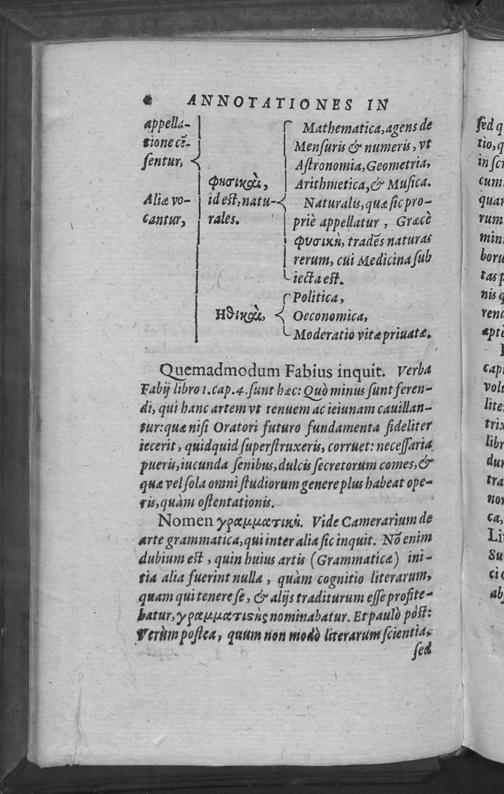 ANNOTATIONES IN
appella-
tione cẽ-
sentur,
Aliæ vo-
cantur,
φησικαὶ,
id est, natu-
rales.
Mathematica, agens de
Mensuris & numeris, vt
Astronomia, Geometria,
Arithmetica, & Musica.
Naturalis, quæ sic pro-
priè appellatur, Græcè
φυσικὴ, tradẽs naturas
rerum, cui Medicina sub
iecta est.
Ηθικαὶ,
Politica,
Oeconomica,
Moderatio vitæ priuatæ.
Quemadmodum Fabius inquit. Verba
Fabij libro 1. cap. 4. sunt hæc: Quò minus sunt feren-
di, qui hanc artem vt tenuem ac ieiunam cauillan-
tur: quæ nisi Oratori futuro fundamenta fideliter
iecerit, quidquid superstruxeris, corruet: necessaria
pueris, iucunda senibus, dulcis secretorum comes, &
quæ vel sola omni studiorum genere plus habeat ope-
ris, quàm ostentationis.
Nomen γραμματικὴ. Vide Camerarium de
arte grammatica, qui inter alia sic inquit. Nõ enim
dubium est, quin huius artis (Grammaticæ) ini-
tia alia fuerint nulla, quàm cognitio literarum,
quam qui tenere se, & alijs traditurum esse profite-
batur, γραμματιστὴς nominabatur. Et paulò pòst:
Verùm postea, quum non modò literarum scientia,
sed